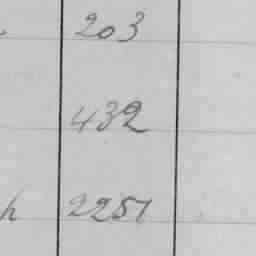 203
432
h 2251